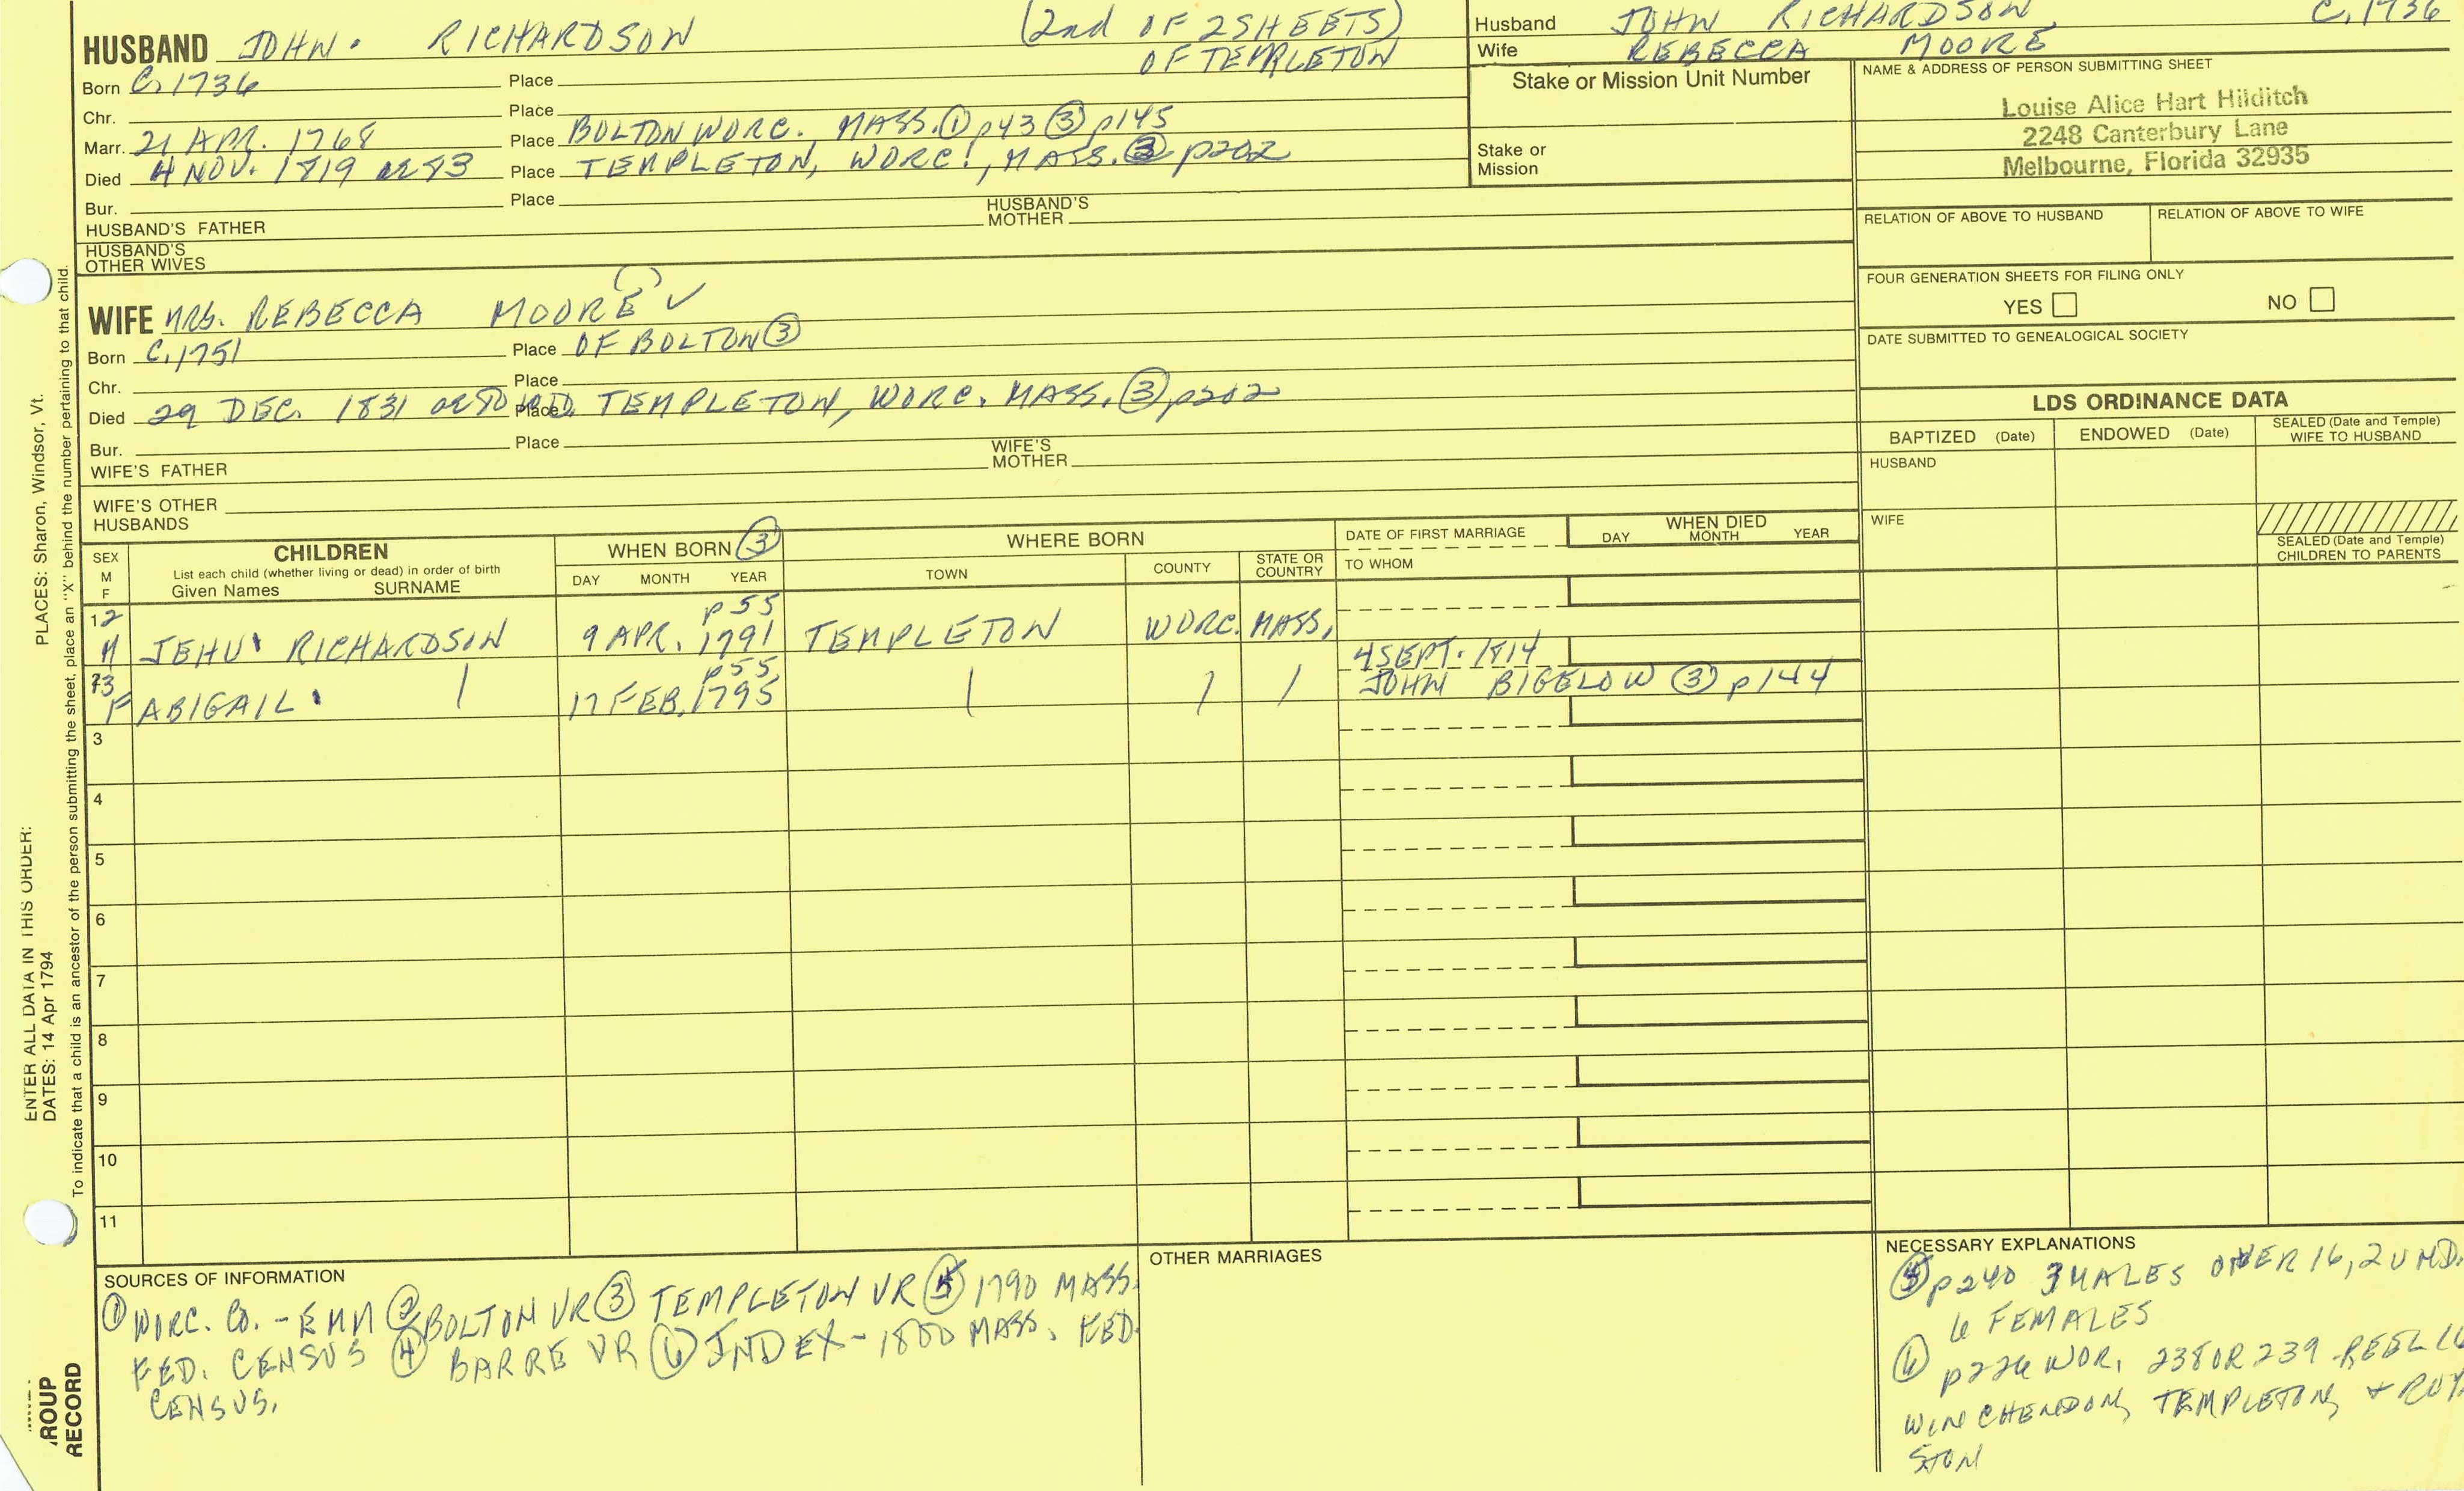 HUSBAND JOHN. RICHARDSON (2nd OF 2 SHEETS)
OF TEMPLETON
Born C. 1736 Place
Chr. Place
Marr. 21 APR. 1768 Place BOLTON WORC. MASS. ① p43 ③ p145
Died 4 NOV. 1819 ae 83 Place TEMPLETON, WORC., MASS. ③ p202
Bur. Place
HUSBAND'S FATHER HUSBAND'S MOTHER
HUSBAND'S OTHER WIVES
Husband JOHN RICHARDSON C. 1736
Wife REBECCA MOORE
Stake or Mission Unit Number
Stake or Mission
NAME & ADDRESS OF PERSON SUBMITTING SHEET
Louise Alice Hart Hilditch
2248 Canterbury Lane
Melbourne, Florida 32935
RELATION OF ABOVE TO HUSBAND RELATION OF ABOVE TO WIFE
FOUR GENERATION SHEETS FOR FILING ONLY
YES NO
DATE SUBMITTED TO GENEALOGICAL SOCIETY
WIFE MRS. REBECCA MOORE ✓
( )
Born C. 1751 Place OF BOLTON ③
Chr. Place
Died 29 DEC. 1831 ae 80 WID. Place TEMPLETON, WORC. MASS. ③ p202
Bur. Place
WIFE'S FATHER WIFE'S MOTHER
WIFE'S OTHER HUSBANDS
LDS ORDINANCE DATA
BAPTIZED (Date) ENDOWED (Date) SEALED (Date and Temple) WIFE TO HUSBAND
HUSBAND
WIFE
SEALED (Date and Temple) CHILDREN TO PARENTS
SEX M F
CHILDREN
List each child (whether living or dead) in order of birth
Given Names SURNAME
WHEN BORN ③
DAY MONTH YEAR
WHERE BORN
TOWN COUNTY STATE OR COUNTRY
DATE OF FIRST MARRIAGE
TO WHOM
WHEN DIED
DAY MONTH YEAR
12 p55
M JEHU RICHARDSON 9 APR. 1791 TEMPLETON WORC. MASS.
13 p55 4 SEPT. 1814
F ABIGAIL. 17 FEB. 1795 JOHN BIGELOW ③ p144
3
4
5
6
7
8
9
10
11
SOURCES OF INFORMATION
① WORC. Co. - EMM ② BOLTON VR ③ TEMPLETON VR ⑤ 1790 MASS.
FED. CENSUS ④ BARRE VR ⑥ INDEX - 1800 MASS. FED.
CENSUS.
OTHER MARRIAGES
NECESSARY EXPLANATIONS
⑤ p240 3 MALES OVER 16, 2 UND.
6 FEMALES
⑥ p226 WOR. 238 OR 239 REEL
WINCHENDON, TEMPLETON, + ROY
STON
ENTER ALL DATA IN THIS ORDER:
DATES: 14 Apr 1794 PLACES: Sharon, Windsor, Vt.
To indicate that a child is an ancestor of the person submitting the sheet, place an "X" behind the number pertaining to that child.
ROUP
RECORD